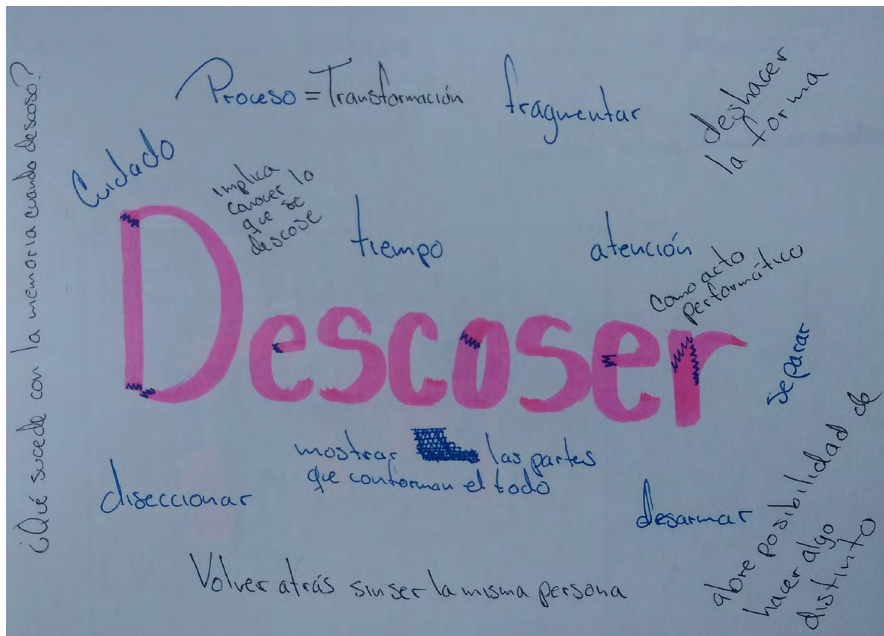 ¿Qué sucede con la memoria cuando descoso?
Proceso = Transformación
fragmentar
deshacer
la forma
Cuidado
implica
conocer lo
que se
descose
tiempo
atención
como acto
performático
Descoser
separar
mostrar las partes
que conforman el todo
diseccionar
desarmar
abre posibilidad de
hacer algo
distinto
Volver atrás sin ser la misma persona